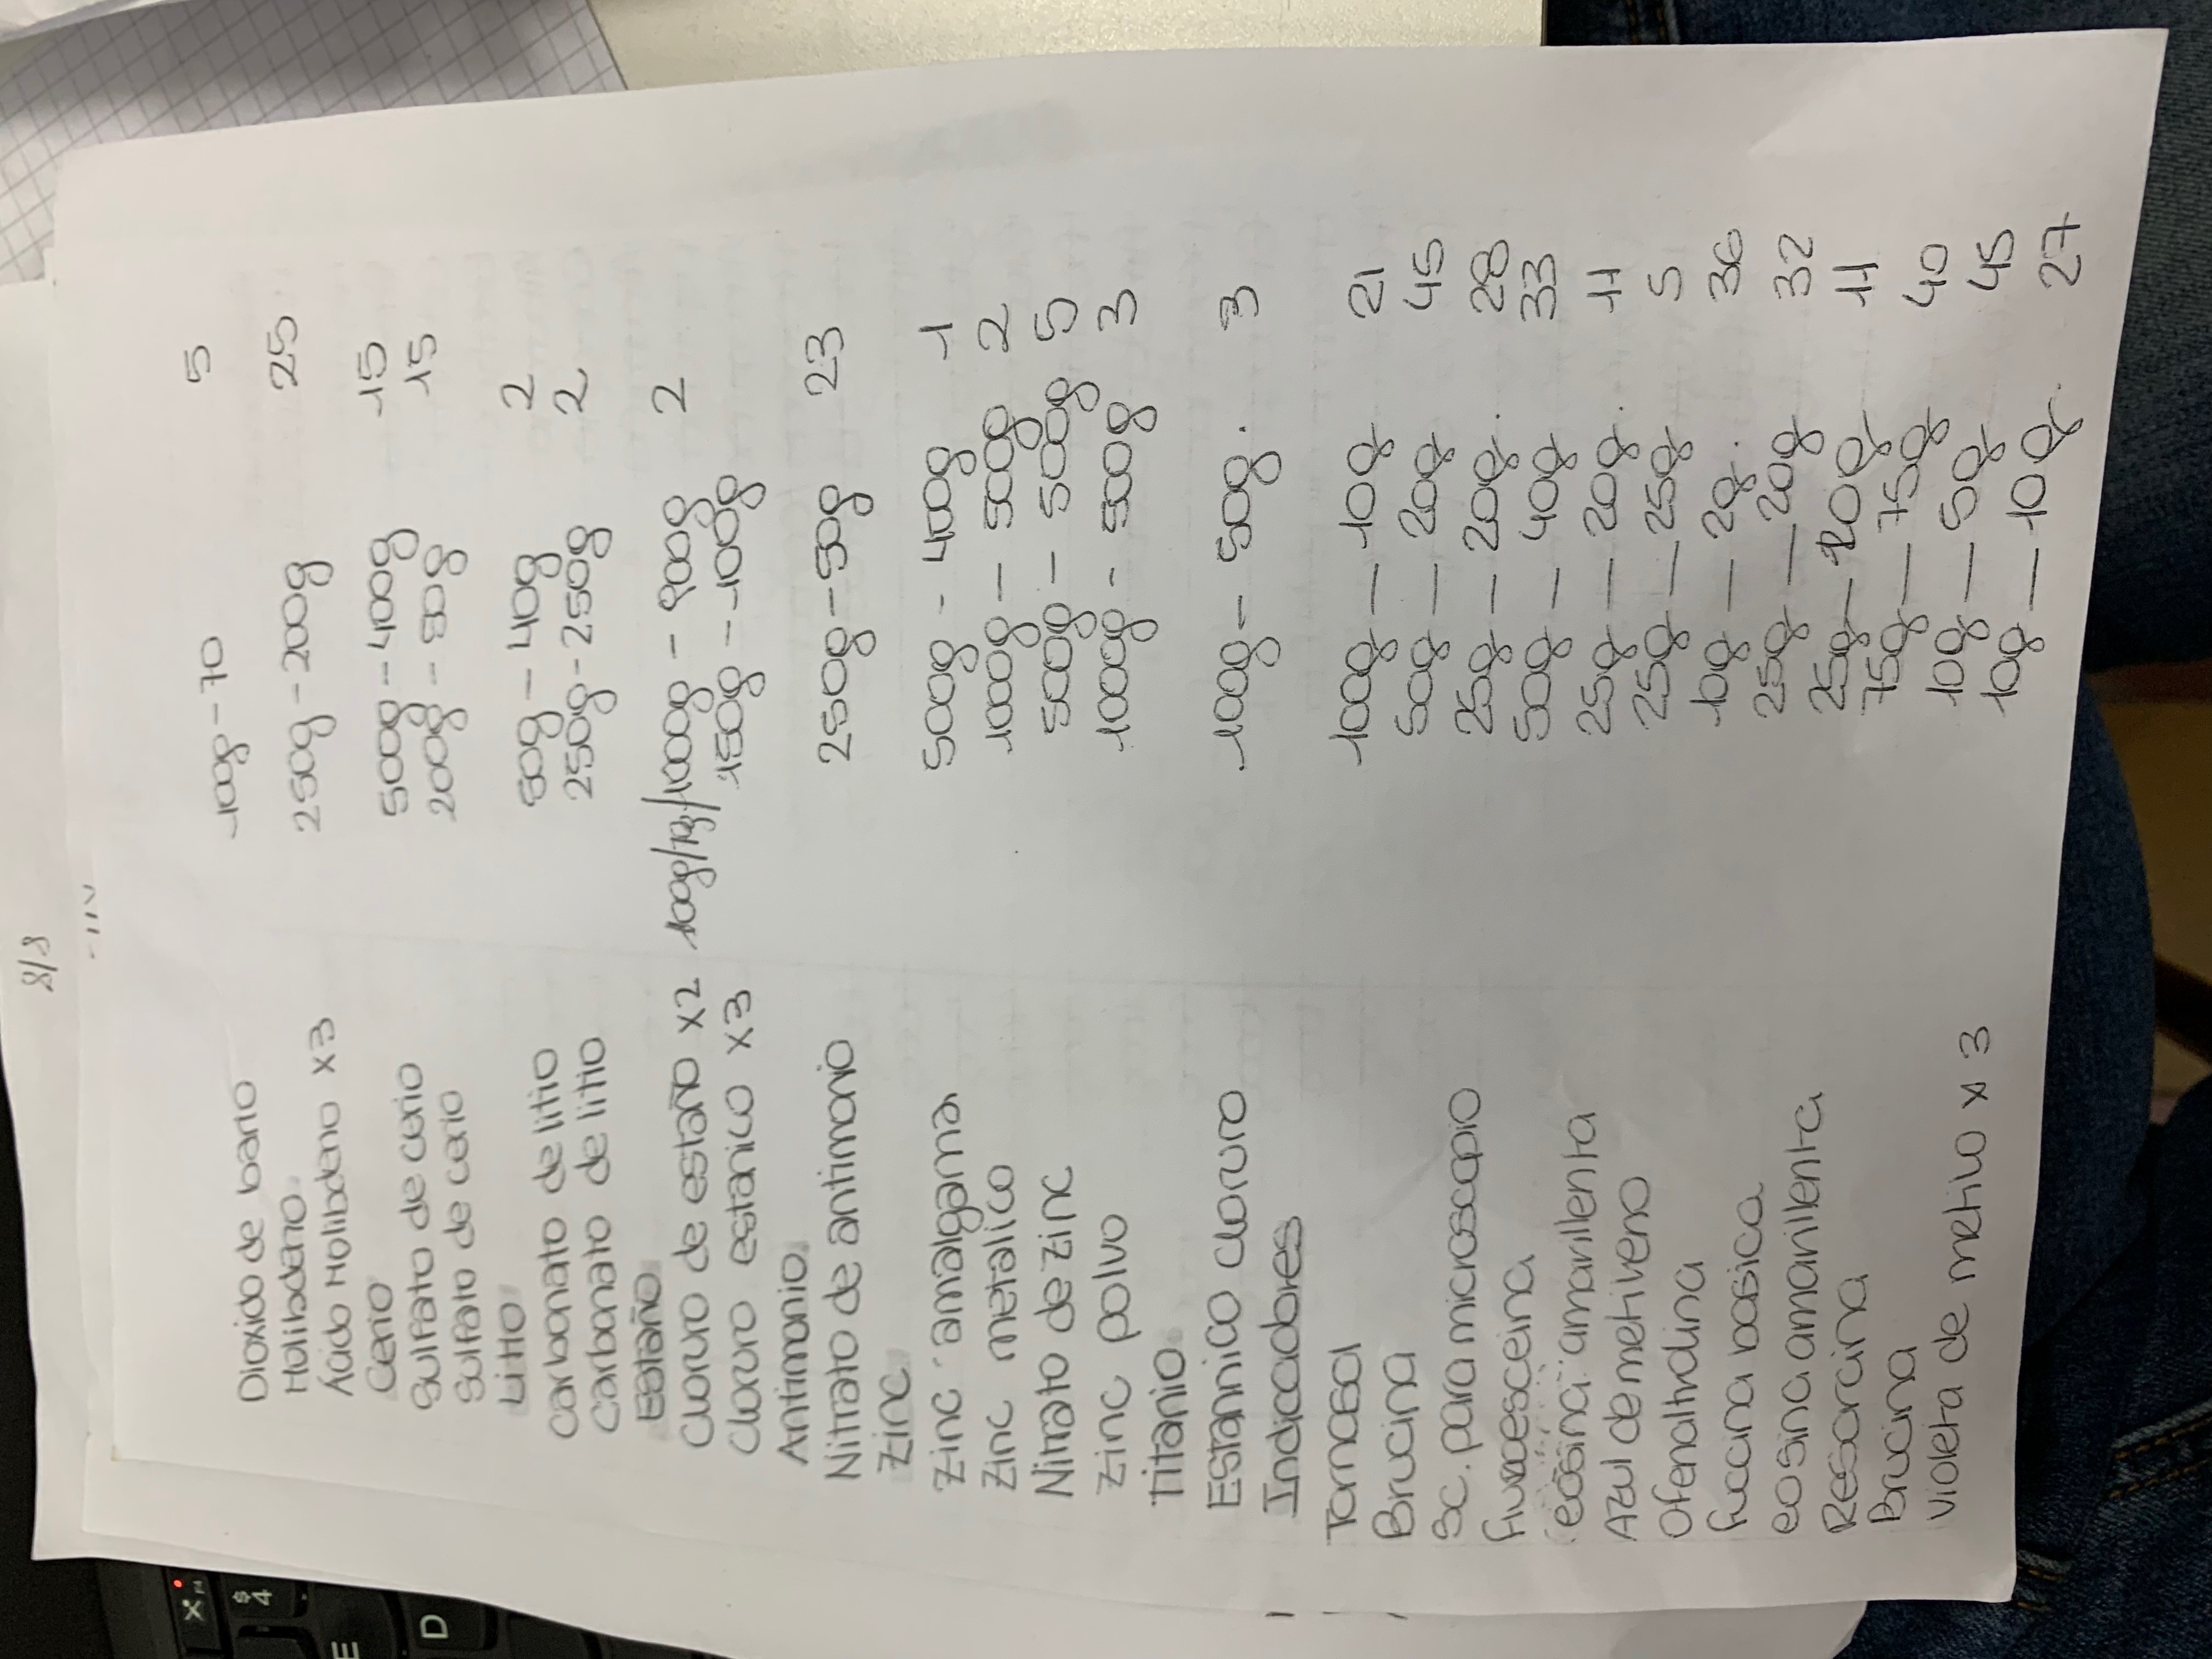 8/8
Dioxido de bario 100g - 70 5
Molibdeno
Ácido Molibdeno x3 250g - 200g 25
Cerio
Sulfato de cerio 500g - 400g 15
Sulfato de cerio 200g - 50g 15
Litio
Carbonato de litio 50g - 40g 2
Carbonato de litio 250g - 250g 2
Estaño
Cloruro de estaño x2 100g/ /1000g - 900g 2
Cloruro estanico x3 150g - 100g
Antimonio
Nitrato de antimonio 250g - 50g 23
Zinc
Zinc amalgama 500g - 400g 1
Zinc metalico 1000g - 500g 2
Nitrato de zinc 500g - 500g 5
Zinc polvo 1000g - 500g 3
Titanio
Estannico cloruro 100g - 50g. 3
Indicadores
Tornasol 100g - 10g 21
Brucina 50g - 20g 45
Sc. para microscopio 25g - 20g. 28
fluoresceina 50g - 40g 33
eosina amarillenta 25g - 20g. 11
Azul de metileno 25g - 25g 5
Ofenaltrolina 10g - 2g. 36
fuccina basica 25g - 20g 32
eosina amarillenta 25g - 20g 11
Resorcina 75g - 75g 40
Brucina 10g - 5g 45
Violeta de metilo x 3 10g - 10g. 27
X F4
$
4
E
D